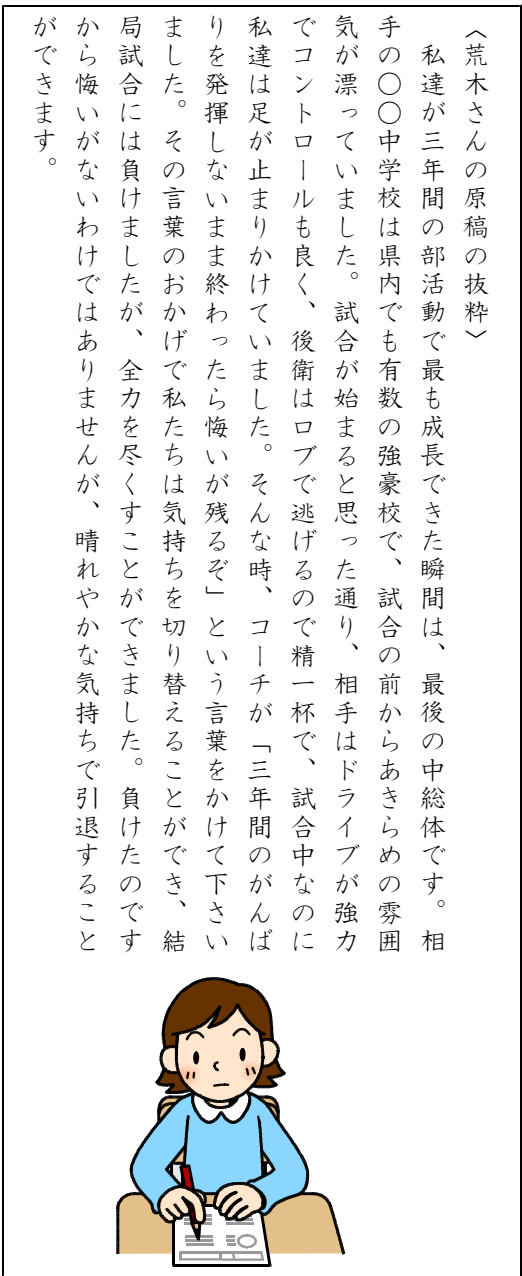 〈荒木さんの原稿の抜粋〉
　私達が三年間の部活動で最も成長できた瞬間は、最後の中総体です。相
手の〇〇中学校は県内でも有数の強豪校で、試合の前からあきらめの雰囲
気が漂っていました。試合が始まると思った通り、相手はドライブが強力
でコントロールも良く、後衛はロブで逃げるので精一杯で、試合中なのに
私達は足が止まりかけていました。そんな時、コーチが「三年間のがんば
りを発揮しないまま終わったら悔いが残るぞ」という言葉をかけて下さい
ました。その言葉のおかげで私たちは気持ちを切り替えることができ、結
局試合には負けましたが、全力を尽くすことができました。負けたのです
から悔いがないわけではありませんが、晴れやかな気持ちで引退すること
ができます。